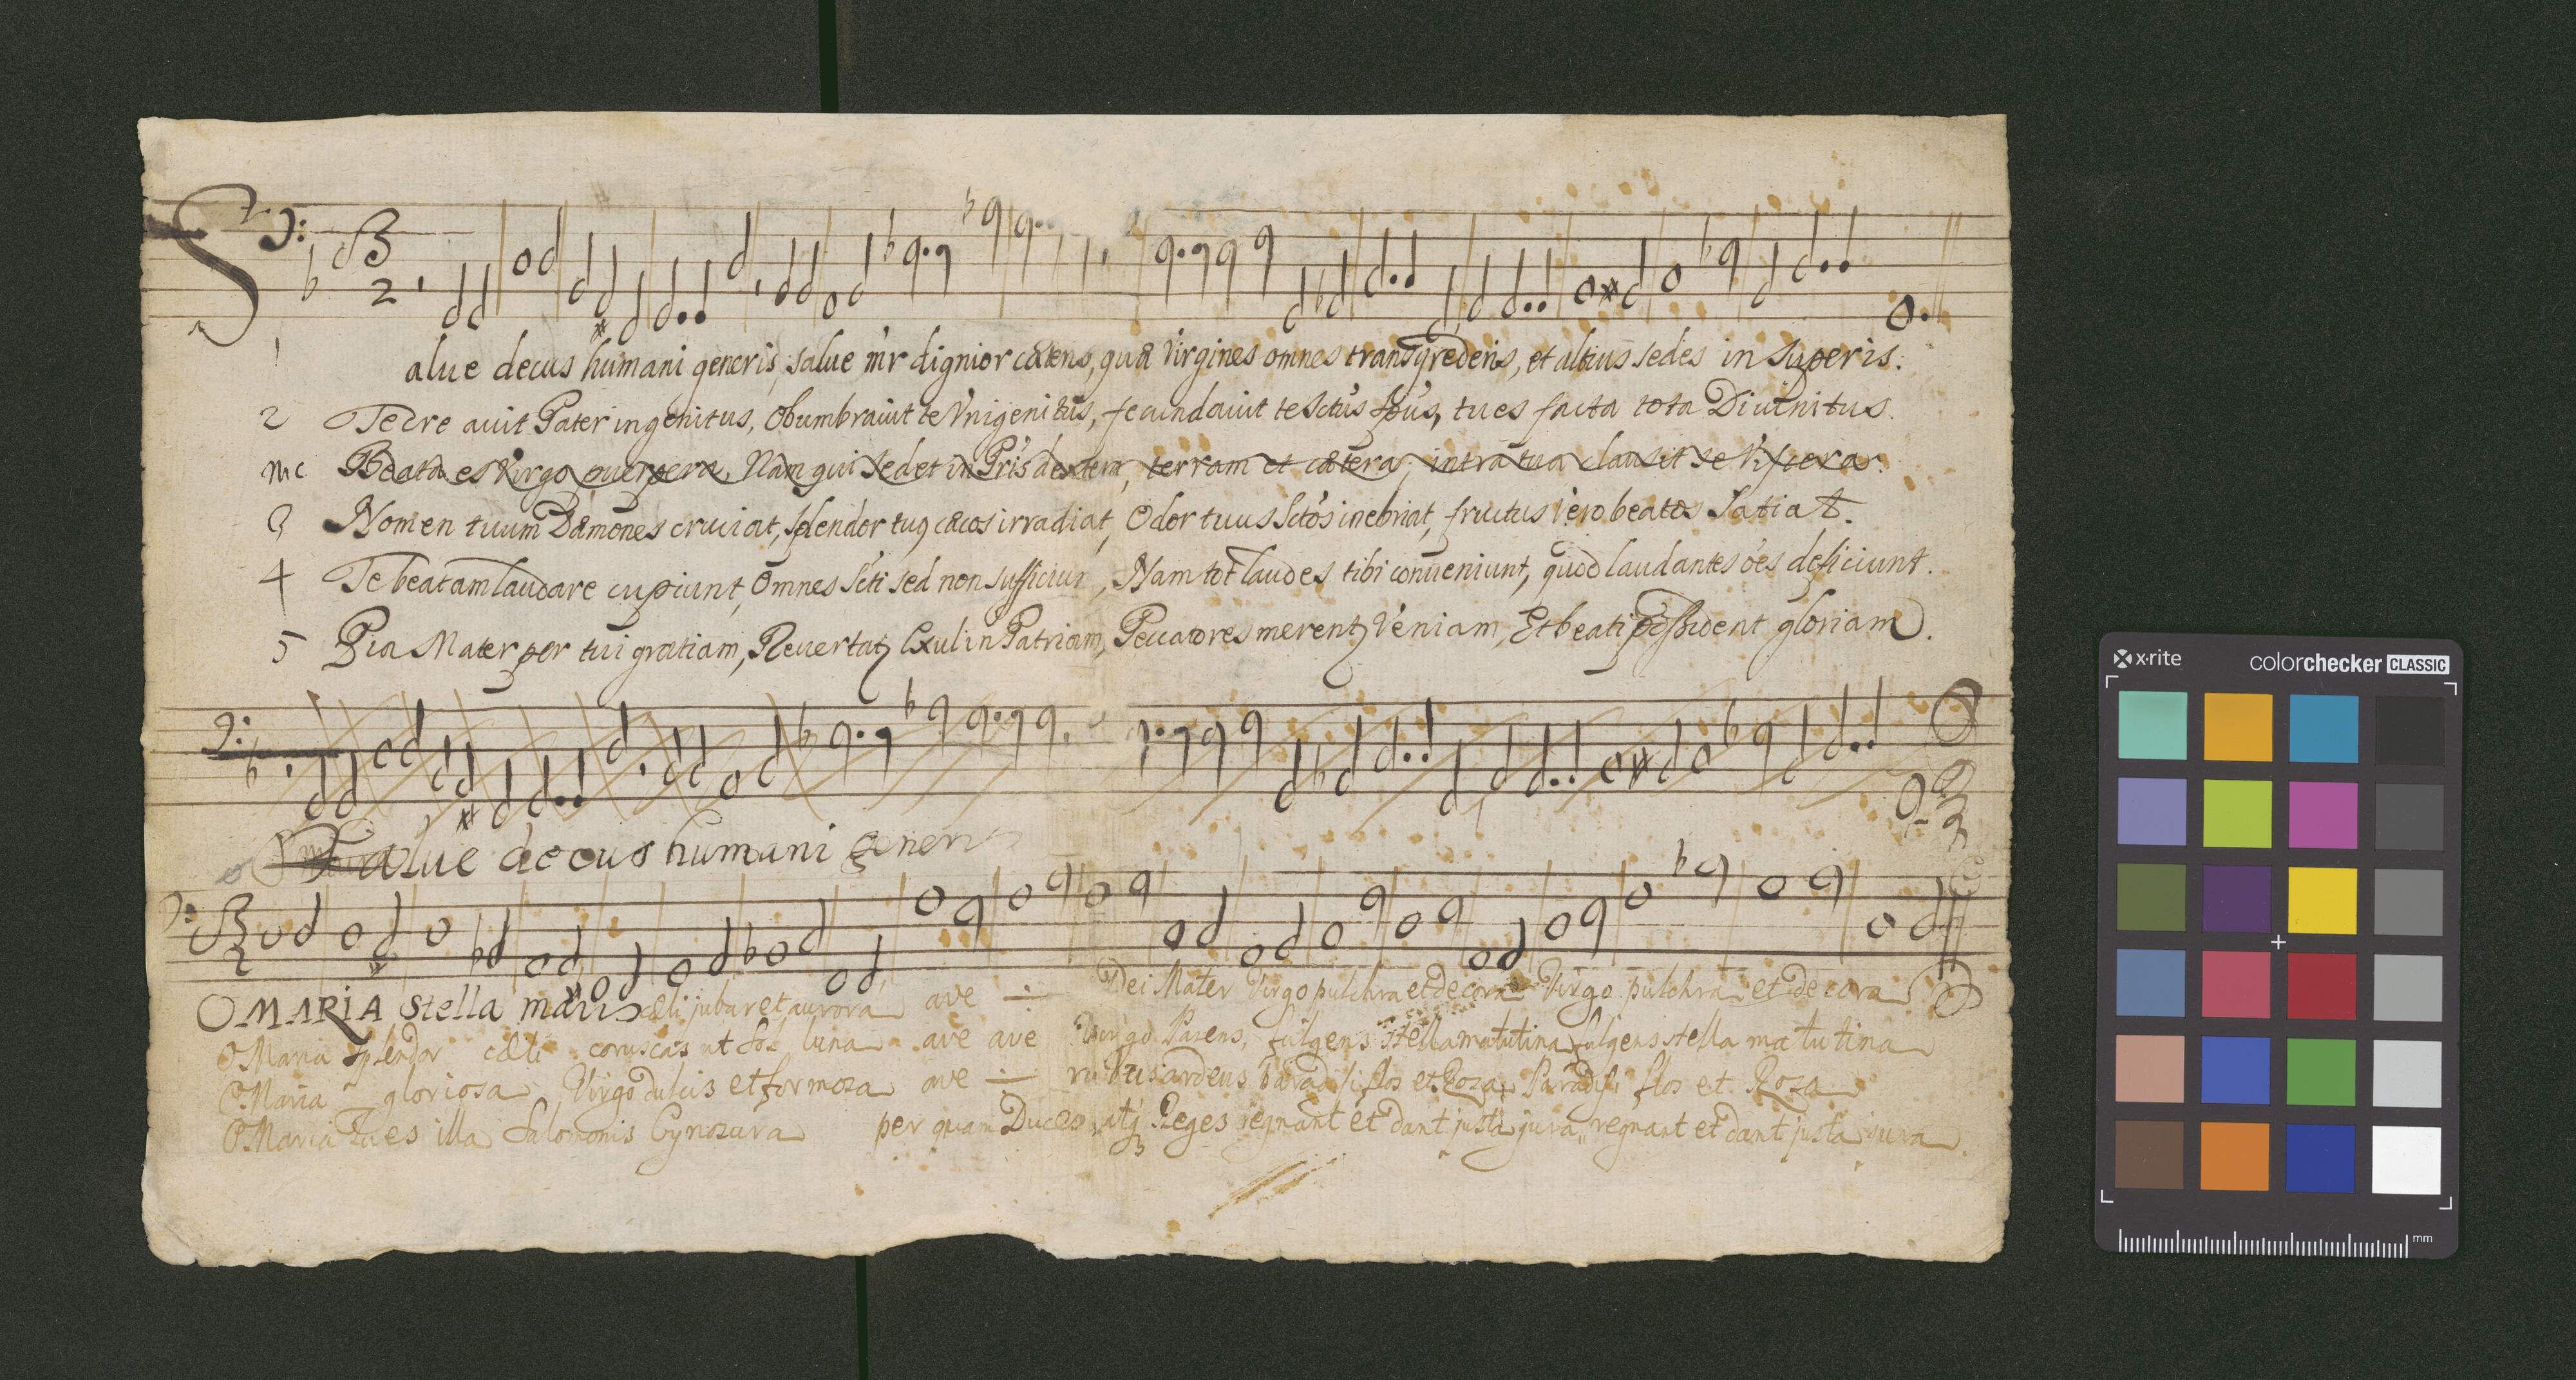 1
Salue decus humani generis, salue m̃r dignior cæteris, quæ Virgines omnes transgrederis, et altius sedes in superis.
2 Te creauit Pater ingenitus, Obumbrauit te Vnigenitus, fecundauit te Sctũs Spũs, tu es facta tota Diuinitus.
Beata es Virgo puerpera, Nam qui sedet in Pr̃is dextera, terram et cætera, intra tua clausit se Viscera.
3 Nomen tuum Dæmones cruciat, splendor tuq cæcos irradiat, Odor tuus Sctõs inebriat, fructus vero beatos Satiat.
4 Te beatam laudare cupiunt, Omnes Scti sed non sufficiunt, Nam tot laudes tibi conueniunt, quod laudantes oẽs deficiunt.
5 Pia Mater per tui gratiam, Reuertatz Exul in Patriam, Peccatores merentz Veniam, Et beati possident gloriam.
Salue decus humani gener
O MARIA Stella maris cæli jubar et aurora ave ÷ Dei Mater Virgo pulchra et decora Virgo pulchra et decora
O Maria splendor cæli coruscas ut Sol luna ave ave Virgo Parens, fulgens Stella matutina fulgens stella matutina
O Maria gloriosa Virgo dulcis et formoza ave ÷ rubus ardens Paradisi flos et Roza Paradisi flos et Roza
O Maria Tu es illa Salomonis Cynozura per quam Duces atq Reges regnant et dant justa jura regnant et dant justa jura
x·rite colorchecker CLASSIC
mm